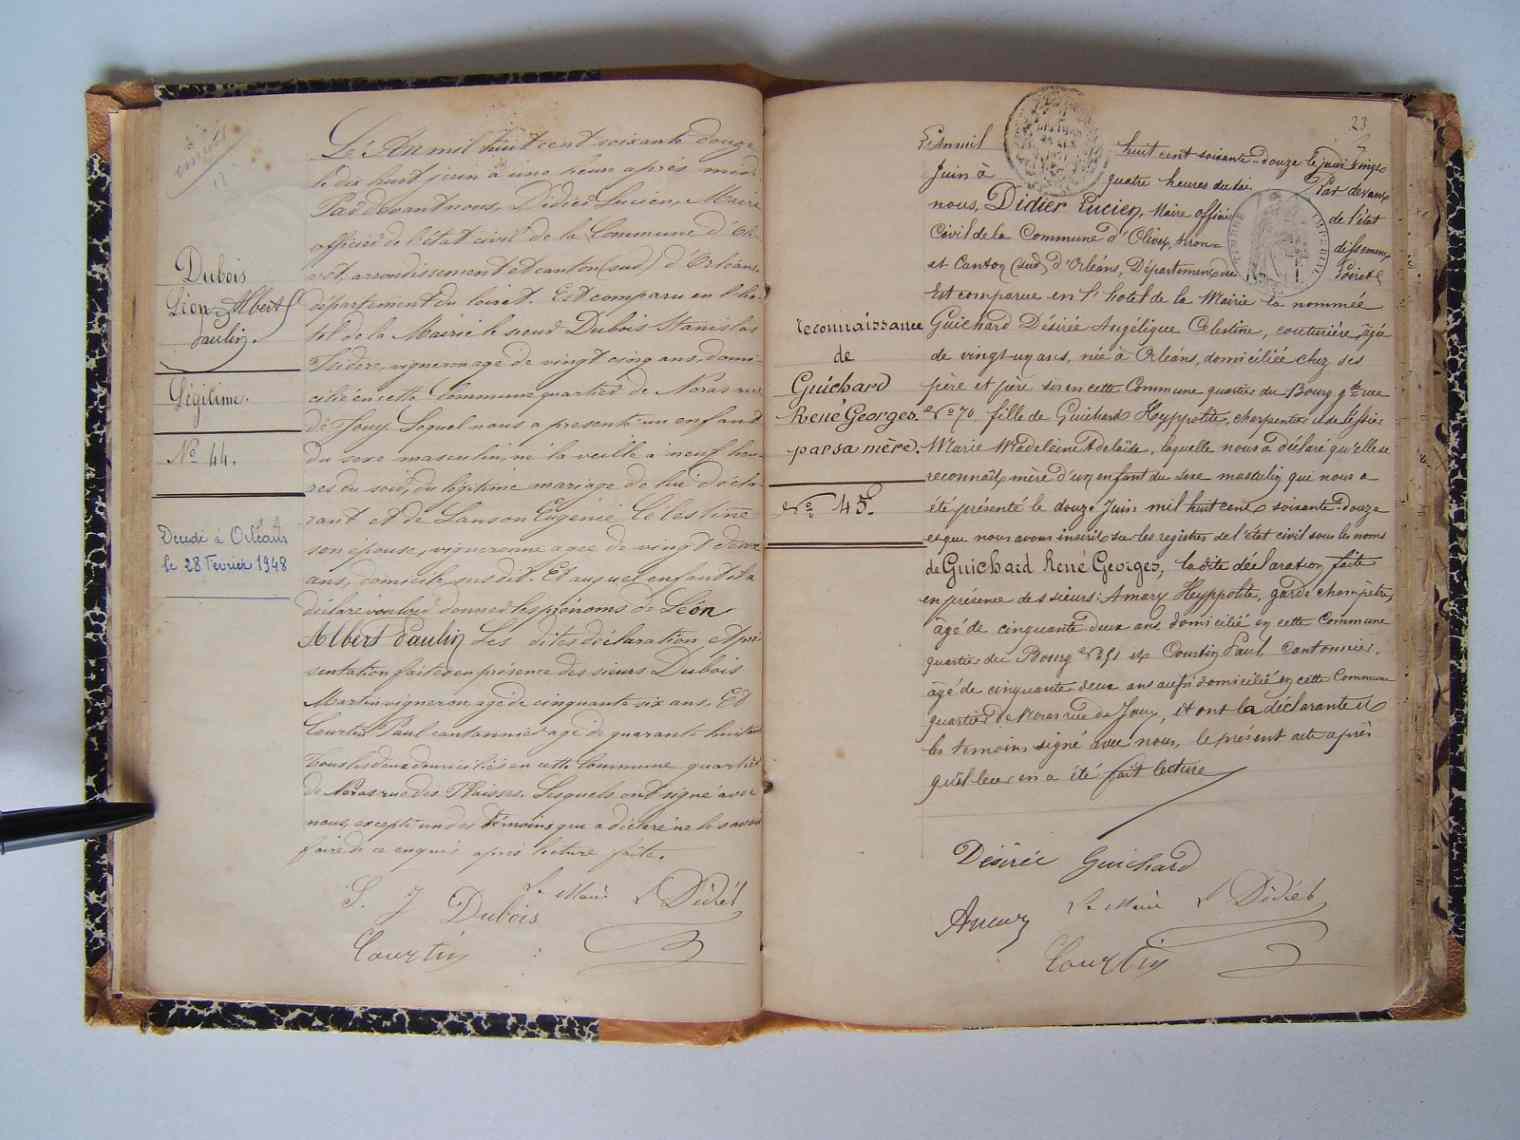 Dubois
Léon Albert
Paulin.
Légitime.
No 44.
Décédé à Orléans
le 28 Février 1948
L'An mil huit cent soixante douze
le dix huit juin à une heure après midi
Par devant nous, Didier Lucien, Maire
officier de l'état civil de la Commune d'Oli-
vet, arrondissement et canton (sud) d'Orléans,
département du Loiret. Est comparu en l'hô-
tel de la Mairie le sieur Dubois Stanislas
Isidore, vigneron agé de vingt cinq ans, domi-
cilié en cette Commune quartier de Noras rue
de Jouy. Lequel nous a présenté un enfant
du sexe masculin, né la veille à neuf heu-
res du soir, du légitime mariage de lui décla-
rant et de Lanson Eugénie Célestine
son épouse, vigneronne agée de vingt deux
ans, domicile susdit. Et auquel enfant il a
déclaré vouloir donner les prénoms de Léon
Albert Paulin Les dites déclaration et pré-
sentation faites en présence des sieurs Dubois
Martin vigneron agé de cinquante six ans Et
Courtin Paul cantonnier agé de quarante huit ans
tous les deux domiciliés en cette Commune quartier
de Noras rue des Plaisses. Lesquels ont signé avec
nous, excepté un des témoins qui a déclaré ne le savoir
faire de ce enquis après lecture faite.
S. J Dubois
Le Maire L Didier
Courtin
23
reconnaissance
de
Guichard
René Georges.
par sa mère.
No 45.
L'An mil huit cent soixante-douze le
Juin à quatre heures du soi Par devant
nous, Didier Lucien, Maire offici de l'état
Civil de la Commune d'Olivet, Arron= dissement
et Canton (sud) d'Orléans, Département du Loiret
Est comparue en l'hôtel de la Mairie la nommée
Guichard Désirée Angélique Celestine, couturière, âgée
de vingt-un ans, née à Orléans, domiciliée chez ses
père et mère en cette Commune quartier du Bourg gde rue
No 70 fille de Guichard Hyppolite, charpentier et de
Marie Madeleine Adelaïde, laquelle nous a déclaré qu'elle se
reconnaît mère d'un enfant du sexe masculin qui nous a
été présenté le douze Juin mil huit cent soixante-douze
et que nous avons inscrit sur les registres de l'état civil sous les noms
de Guichard René Georges, la dite déclaration faite
en présence des sieurs: Amary Hyppolite, garde champêtre,
âgé de cinquante deux ans domicilié en cette Commune
quartier du Bourg No 51 et Courtin Paul Cantonnier,
âgé de cinquante-deux ans aussi domicilié en cette Commune
quartier de Noras rue de Jouy, Et ont la déclarante et
les témoins signé avec nous, le présent acte après
qu'il leur en a été fait lecture
Désirée Guichard
Amary
Le Maire L Didier
Courtin